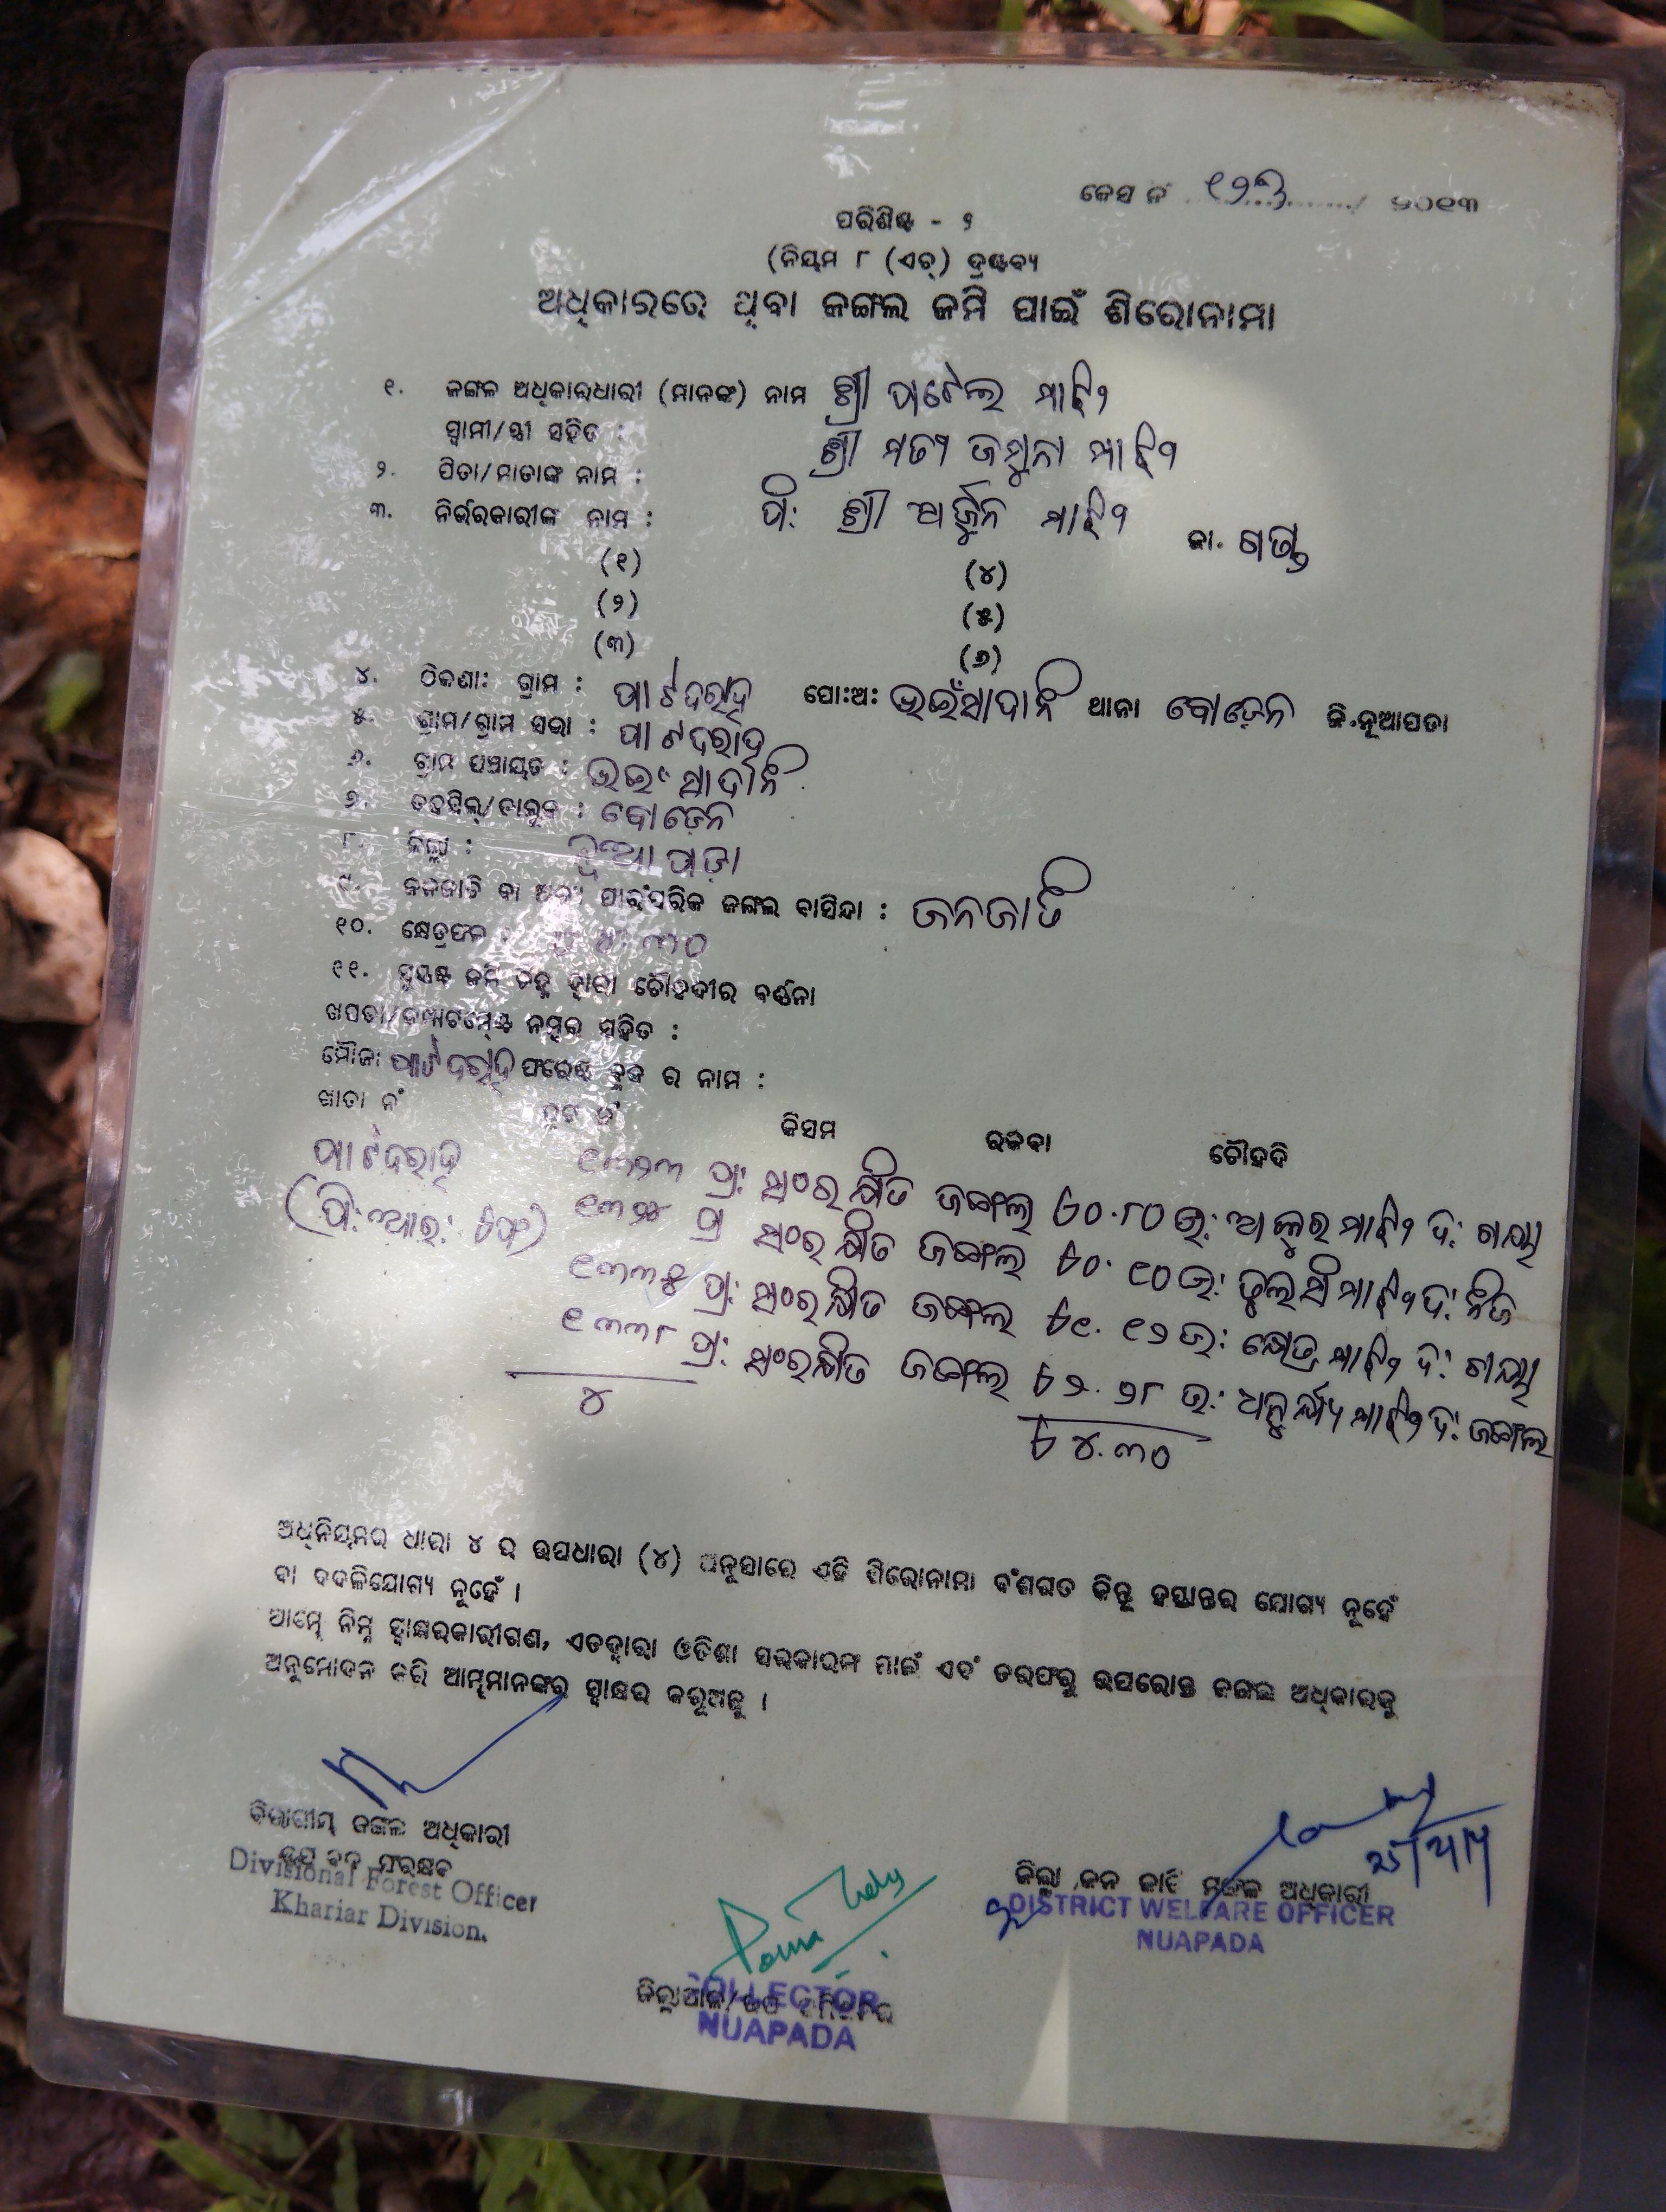 କେସ ନଂ ୧୨୩ / ୨୦୧୩
ପରିଶିଷ୍ଟ - ୨
(ନିୟମ ୮ (ଏଚ୍) ଦ୍ରଷ୍ଟବ୍ୟ
ଅଧିକାରରେ ଥିବା ଜଙ୍ଗଲ ଜମି ପାଇଁ ଶିରୋନାମା
୧. ଜଙ୍ଗଳ ଅଧିକାରଧାରୀ (ମାନଙ୍କ) ନାମ ଶ୍ରୀ ପଟେଲ ମାଝି
ସ୍ୱାମୀ/ସ୍ତ୍ରୀ ସହିତ : ଶ୍ରୀ ମତ୍ୟ ଜମୁନା ମାଝି
୨. ପିତା/ମାତାଙ୍କ ନାମ :
୩. ନିର୍ଭରକାରୀଙ୍କ ନାମ : ପି: ଶ୍ରୀ ଅର୍ଜୁନ ମାଝି ଜା. ଗଣ୍ଡ
(୧) (୪)
(୨) (୫)
(୩) (୬)
୪. ଠିକଣା: ଗ୍ରାମ : ପାଟଦରାହ ପୋ:ଅ: ଭଇଁସାଦାନି ଥାନା ବୋଡ଼େନ ଜି.ନୂଆପଡା
୫. ଗ୍ରାମ/ଗ୍ରାମ ସଭା : ପାଟଦରାହ
୬. ଗ୍ରାମ ପଞ୍ଚାୟତ : ଭଇଂସାଦାନି
୭. ତହସିଲ୍/ତାଲୁକ : ବୋଡ଼େନ
୮. ଜିଲ୍ଲା : ନୂଆପଡ଼ା
୯. ଜନଜାତି ବା ଅନ୍ୟ ପାରଂପରିକ ଜଙ୍ଗଲ ବାସିନ୍ଦା : ଜନଜାତି
୧୦. କ୍ଷେତ୍ରଫଳ ୪.୩୦
୧୧. ସୁସ୍ପଷ୍ଟ ଜମି ଚିହ୍ନ ଦ୍ୱାରା ଚୌହଦୀର ବର୍ଣ୍ଣନା
ଖସଡା/କମ୍ପାଟମେଣ୍ଟ ନମ୍ବର ସହିତ :
ମୌଜା ପାଟଦରାହ ଫରେଷ୍ଟ ବ୍ଲକ ର ନାମ :
ଖାତା ନଂ ପ୍ଲଟ ନଂ କିସମ ରକବା ଚୌହଦି
ପାଟଦରାହ ୧୩୨୩ ପ୍ର: ସଂରକ୍ଷିତ ଜଙ୍ଗଲ ୦.୮୦ ଉ: ଅଙ୍କୁର ମାଝି ଦ: ରାସ୍ତା
(ପି:ଆର: ) ୧୩୨୪ ପ୍ର ସଂରକ୍ଷିତ ଜଙ୍ଗଲ ୦.୧୦ ଉ: ତୁଲସି ମାଝି ଦ: ନିଜ
୧୩୩୫ ପ୍ର: ସଂରକ୍ଷିତ ଜଙ୍ଗଲ ୧.୧୨ ଉ: କ୍ଷେତ୍ର ମାଝି ଦ: ରାସ୍ତା
୧୩୩୮ ପ୍ର: ସଂରକ୍ଷିତ ଜଙ୍ଗଲ ୨.୨୮ ଉ: ମାଝି ଦ: ଜଙ୍ଗଲ
୪ ୪.୩୦
ଅଧିନିୟମର ଧାରା ୪ ର ଉପଧାରା (୪) ଅନୁସାରେ ଏହି ଶିରୋନାମା ବଂଶଗତ କିନ୍ତୁ ହସ୍ତାନ୍ତର ଯୋଗ୍ୟ ନୁହେଁ
ବା ବଦଳିଯୋଗ୍ୟ ନୁହେଁ ।
ଆମ୍ଭେ ନିମ୍ନ ସ୍ୱାକ୍ଷରକାରୀଗଣ, ଏତଦ୍ଦ୍ୱାରା ଓଡିଶା ସରକାରଙ୍କ ପାଇଁ ଏବଂ ତରଫରୁ ଉପରୋକ୍ତ ଜଙ୍ଗଲ ଅଧିକାରକୁ
ଅନୁମୋଦନ କରି ଆମ୍ଭମାନଙ୍କର ସ୍ୱାକ୍ଷର କରୁଅଛୁ ।
ବିଭାଗୀୟ ଜଙ୍ଗଳ ଅଧିକାରୀ
Divisional Forest Officer
Khariar Division.
ଜିଲ୍ଲା ଜନ ଜାତି ମଙ୍ଗଳ ଅଧିକାରୀ
DISTRICT WELFARE OFFICER
NUAPADA
ଜିଲ୍ଲାପାଳ/
COLLECTOR
NUAPADA